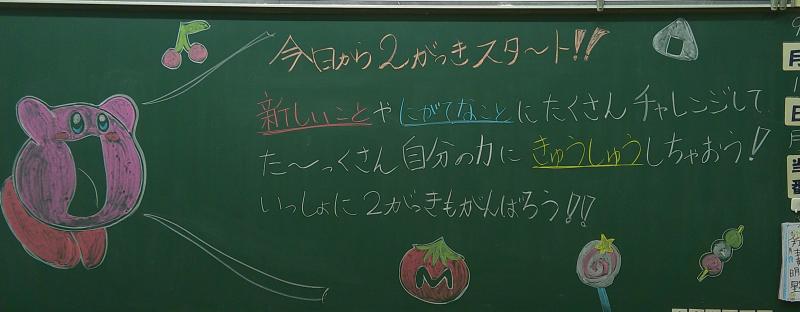 今日から2がっきスタ〜ト!!
新しいことやにがてなことにたくさんチャレンジして
た〜っくさん自分の力にきゅうしゅうしちゃおう!
いっしょに2がっきもがんばろう!!
M
9
月
1
日
月
当
番